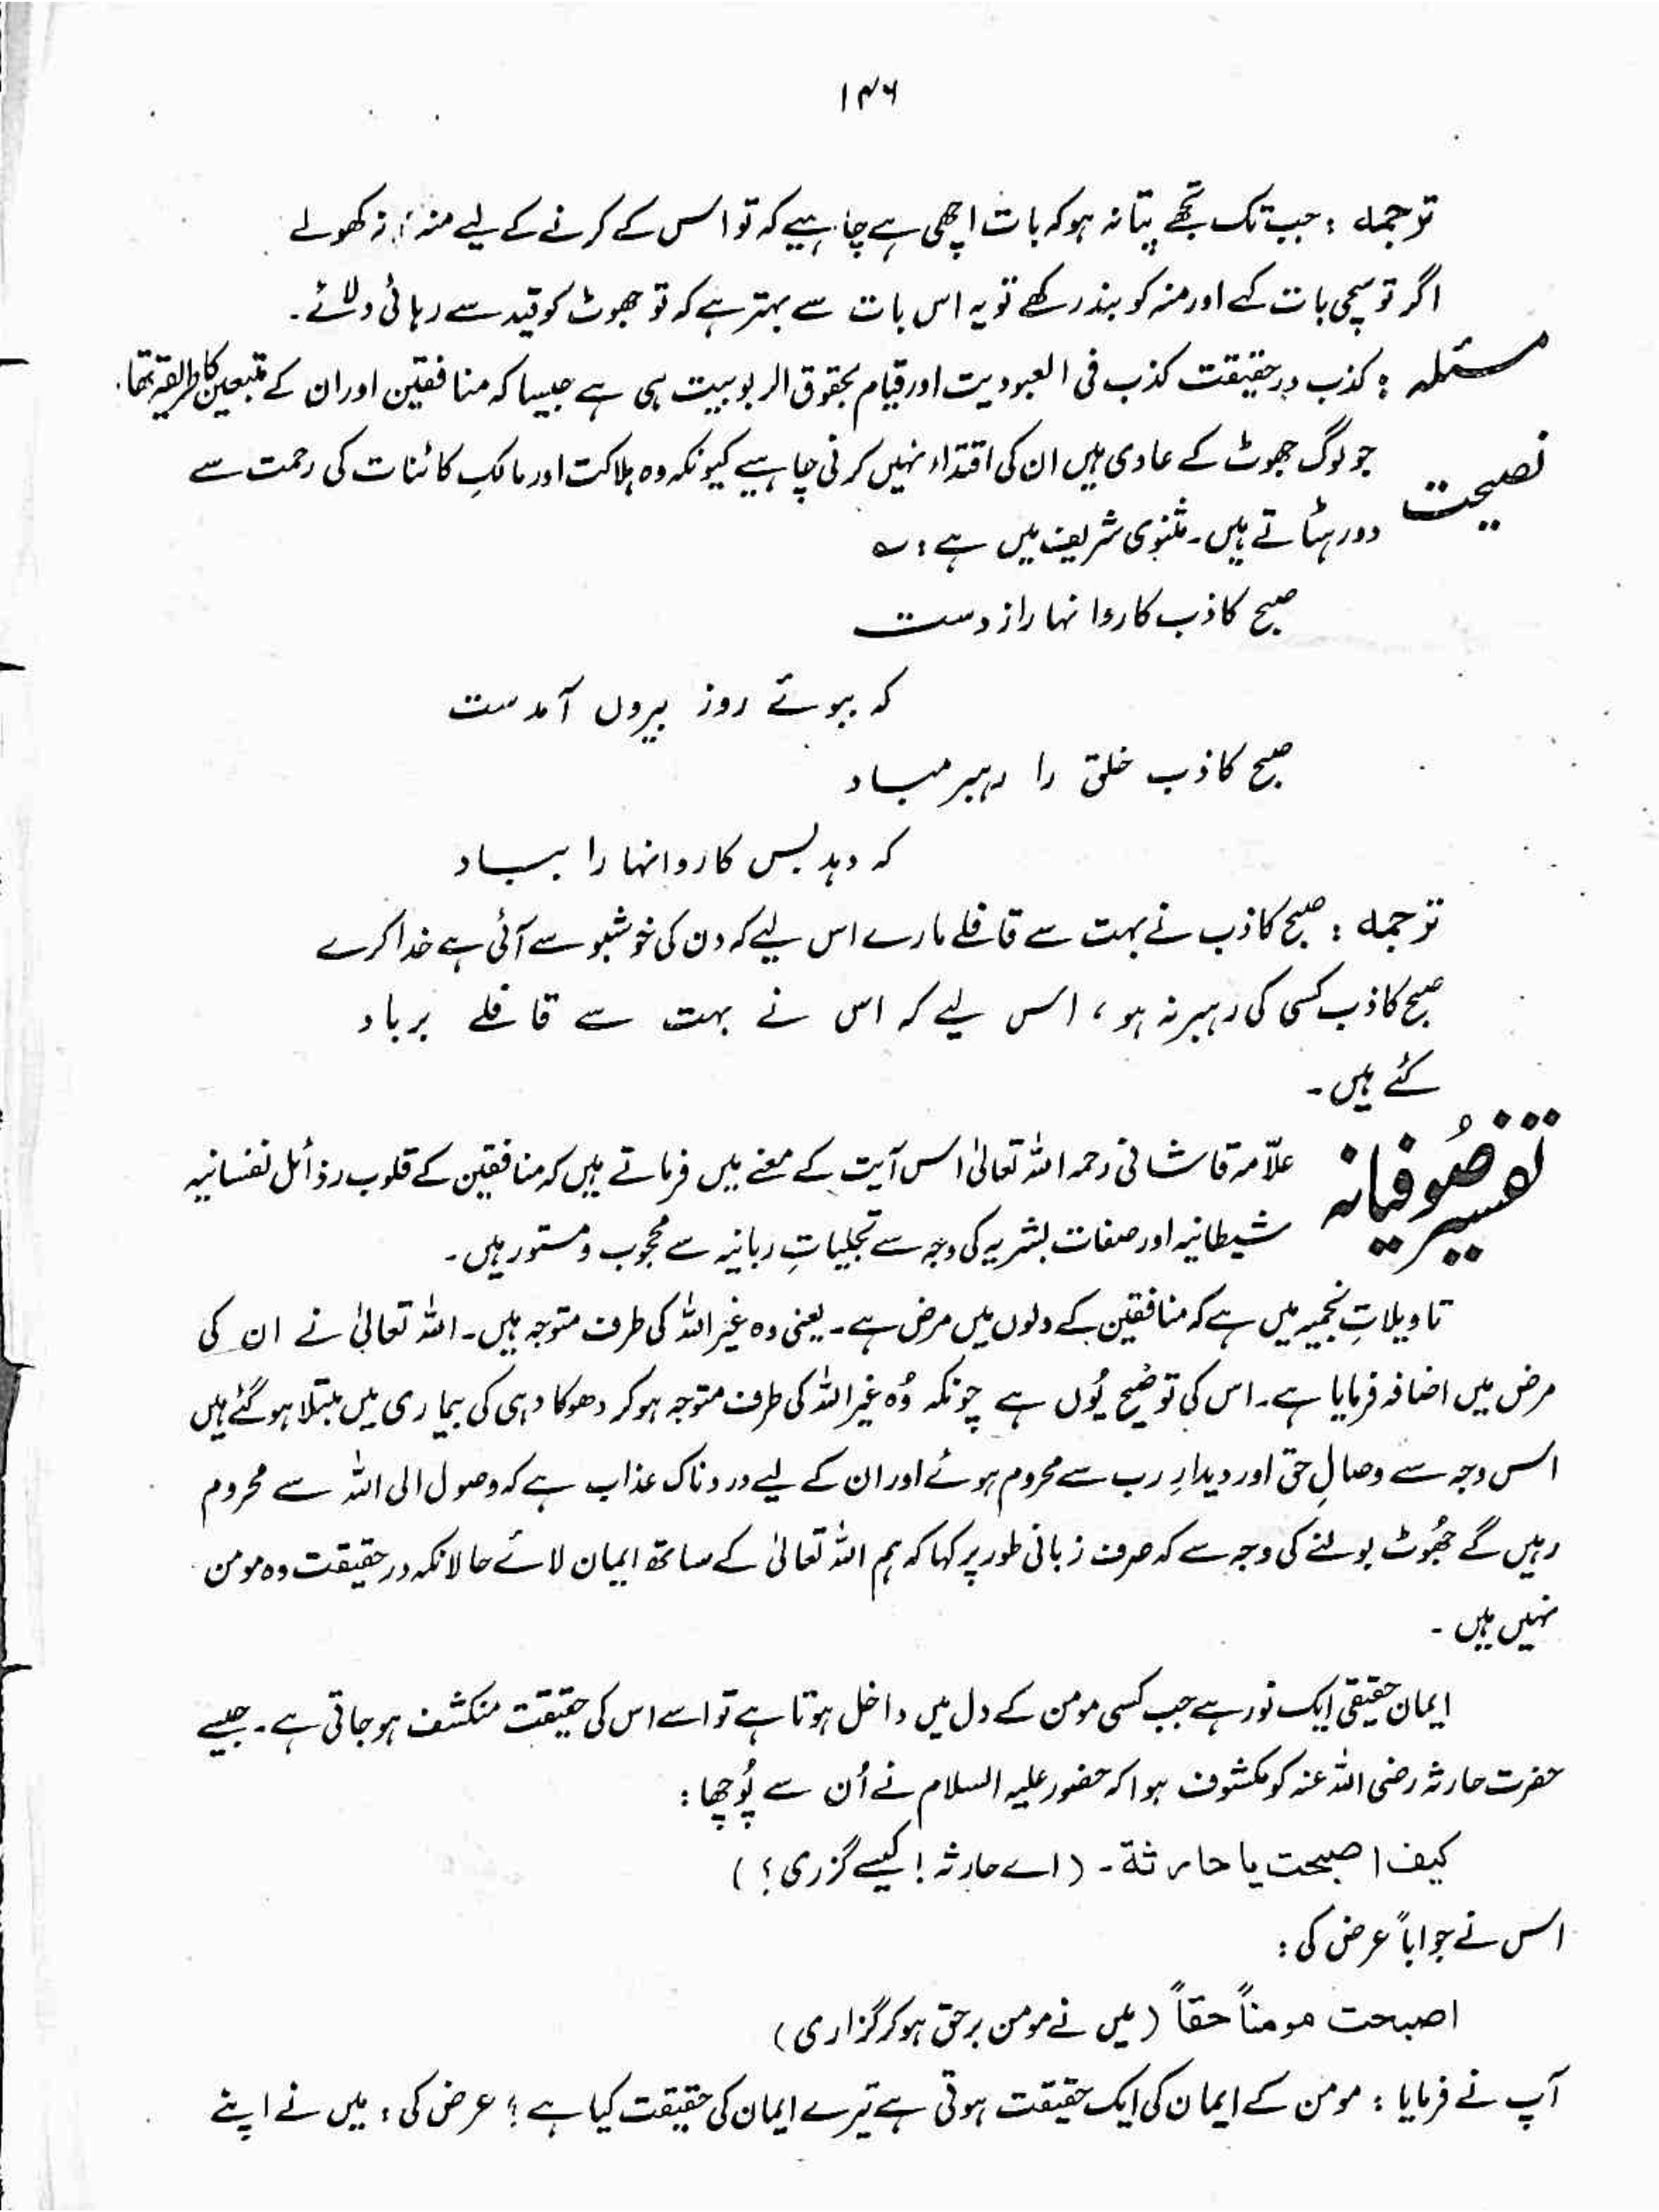 ۱۴۶
ترجمہ : جب تک تجھے پتا نہ ہو کہ بات اچھی ہے چاہیے کہ تو اس کے کرنے کے لیے منہ نہ کھولے
اگر تو سچی بات کہے اور منہ کو بند رکھے تو یہ اس بات سے بہتر ہے کہ تو جھوٹ کو قید سے رہائی دلائے ۔
مسئلہ : کذب درحقیقت کذب فی العبودیت اور قیام بحقوق الربوبیت ہی ہے جیسا کہ منافقین اور ان کے متبعین کا طریقہ تھا ۔
نصیحت جو لوگ جھوٹ کے عادی ہیں ان کی اقتداء نہیں کرنی چاہیے کیونکہ وہ ہلاکت اور مالکِ کائنات کی رحمت سے
دور ہٹاتے ہیں ۔ مثنوی شریف میں ہے : ؎
صبح کاذب کاروانہا را زدست
کہ ببوئے روز بیروں آمدست
صبح کاذب خلق را رہبر مباد
کہ دہد بس کاروانہا را بباد
ترجمہ : صبح کاذب نے بہت سے قافلے مارے اس لیے کہ دن کی خوشبو سے آئی ہے خدا کرے
صبح کاذب کسی کی رہبر نہ ہو ، اس لیے کہ اس نے بہت سے قافلے برباد
کئے ہیں ۔
تفسیر صُوفیانہ علّامہ قاشانی رحمہ اللہ تعالیٰ اس آیت کے معنے میں فرماتے ہیں کہ منافقین کے قلوب رذائل نفسانیہ
شیطانیہ اور صفات بشریہ کی وجہ سے تجلیاتِ ربانیہ سے محجوب و مستور ہیں ۔
تاویلاتِ نجمیہ میں ہے کہ منافقین کے دلوں میں مرض ہے ۔ یعنی وہ غیر اللہ کی طرف متوجہ ہیں ۔ اللہ تعالیٰ نے ان کی
مرض میں اضافہ فرمایا ہے ۔ اس کی توضیح یُوں ہے چونکہ وُہ غیر اللہ کی طرف متوجہ ہو کر دھوکا دہی کی بیماری میں مبتلا ہو گئے ہیں
اس وجہ سے وصالِ حق اور دیدارِ رب سے محروم ہوئے اور ان کے لیے دردناک عذاب ہے کہ وصول الی اللہ سے محروم
رہیں گے جھُوٹ بولنے کی وجہ سے کہ صرف زبانی طور پر کہا کہ ہم اللہ تعالیٰ کے ساتھ ایمان لائے حالانکہ درحقیقت وہ مومن
نہیں ہیں ۔
ایمان حقیقی ایک نور ہے جب کسی مومن کے دل میں داخل ہوتا ہے تو اسے اس کی حقیقت منکشف ہو جاتی ہے ۔ جیسے
حضرت حارثہ رضی اللہ عنہ کو مکشوف ہوا کہ حضور علیہ السلام نے اُن سے پُوچھا :
کیف اصبحت یا حارثة ۔ ( اے حارثہ ! کیسے گزری ؟ )
اس نے جواباً عرض کی :
اصبحت مومناً حقاً ( میں نے مومن برحق ہو کر گزاری )
آپ نے فرمایا : مومن کے ایمان کی ایک حقیقت ہوتی ہے تیرے ایمان کی حقیقت کیا ہے ؟ عرض کی : میں نے اپنے